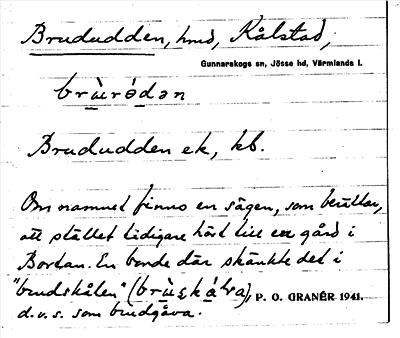 Brududden, hmd, Kålstad,
Gunnarskogs sn, Jösse hd, Värmlands l.
brùrǿdən
Brududden ek, kb.
Om namnet finns en sägen, som berättar,
att stället tidigare hört till en gård i
Bortan. En bonde där skänkte det i
"brudskålen" (brùskåla),
P. O. GRANÉR 1941.
d.v.s. som brudgåva.